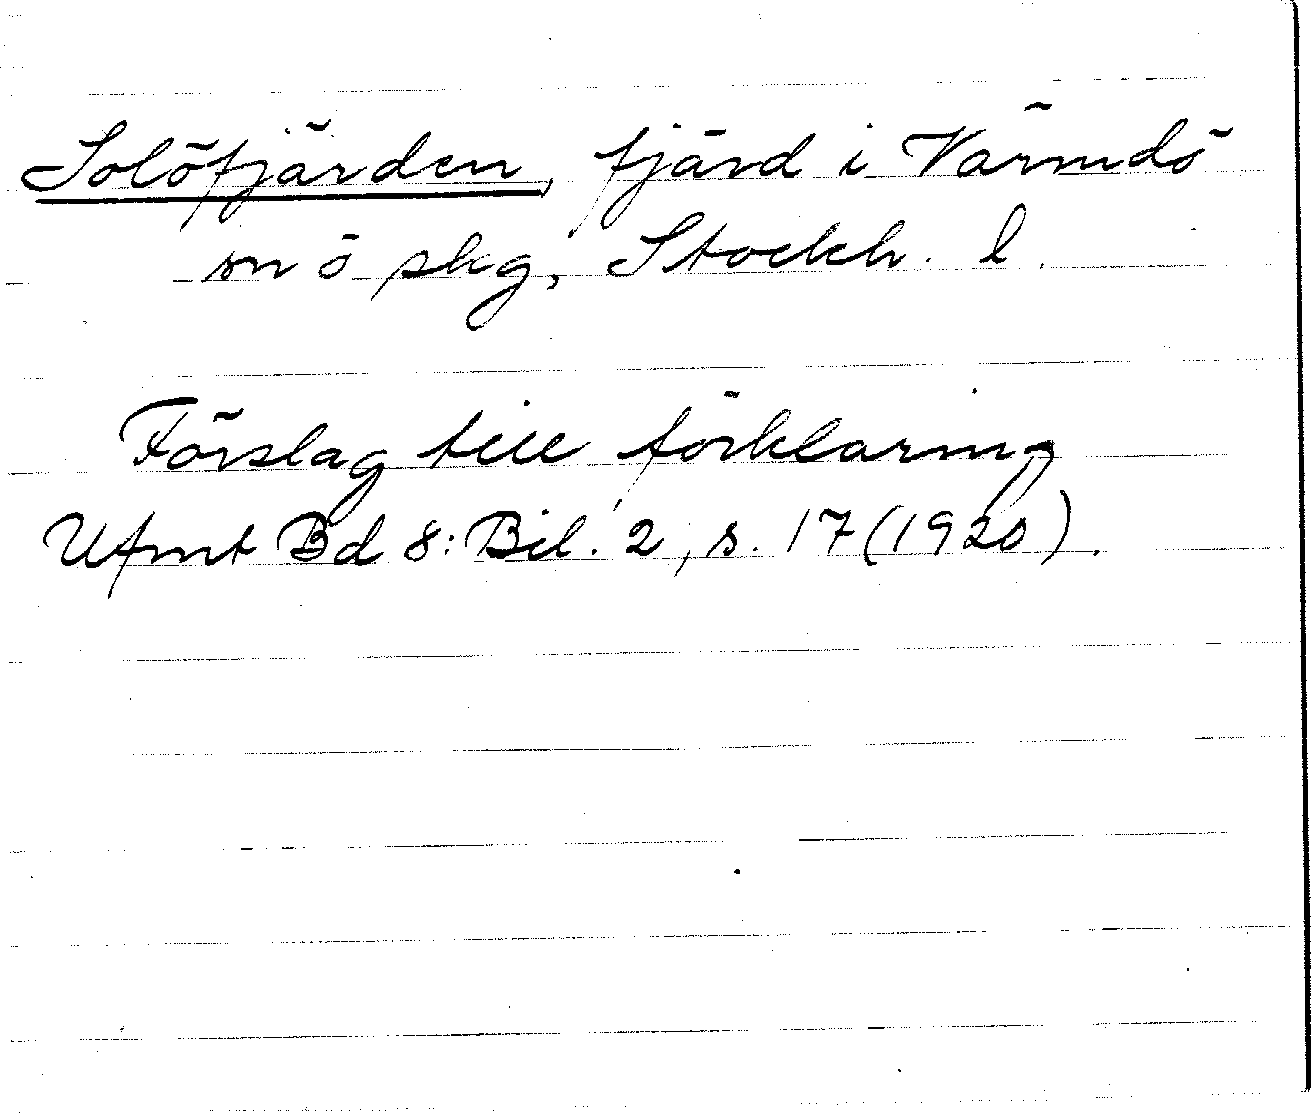 Solöfjärden, fjärd i Värmdö
sn ö skg, Stockh. l.
Förslag till förklaring
Ufmt Bd 8: Bil. 2, s. 17 (1920).